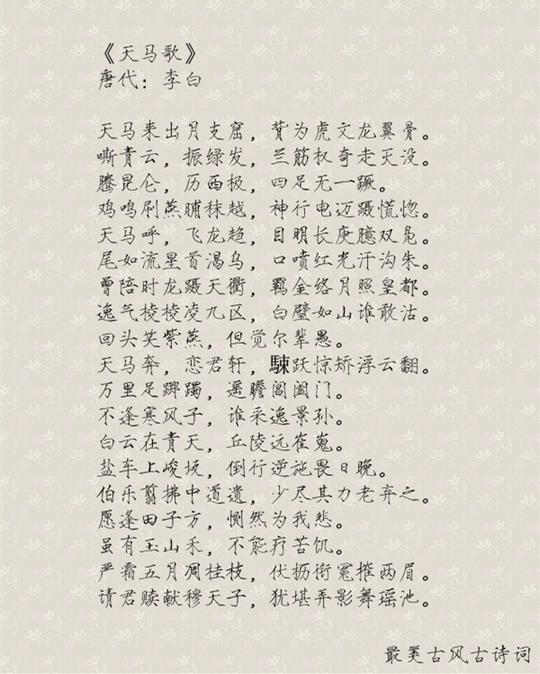 《天马歌》
唐代：李白
天马来出月支窟，背为虎文龙翼骨。
嘶青云，振绿发，兰筋权奇走灭没。
腾昆仑，历西极，四足无一蹶。
鸡鸣刷燕晡秣越，神行电迈蹑慌惚。
天马呼，飞龙趋，目明长庚臆双凫。
尾如流星首渴乌，口喷红光汗沟朱。
曾陪时龙蹑天衢，羁金络月照皇都。
逸气棱棱凌九区，白璧如山谁敢沽。
回头笑紫燕，但觉尔辈愚。
天马奔，恋君轩，駷跃惊矫浮云翻。
万里足踯躅，遥瞻阊阖门。
不逢寒风子，谁采逸景孙。
白云在青天，丘陵远崔嵬。
盐车上峻坂，倒行逆施畏日晚。
伯乐翦拂中道遗，少尽其力老弃之。
愿逢田子方，恻然为我悲。
虽有玉山禾，不能疗苦饥。
严霜五月凋桂枝，伏枥衔冤摧两眉。
请君赎献穆天子，犹堪弄影舞瑶池。
最美古风古诗词